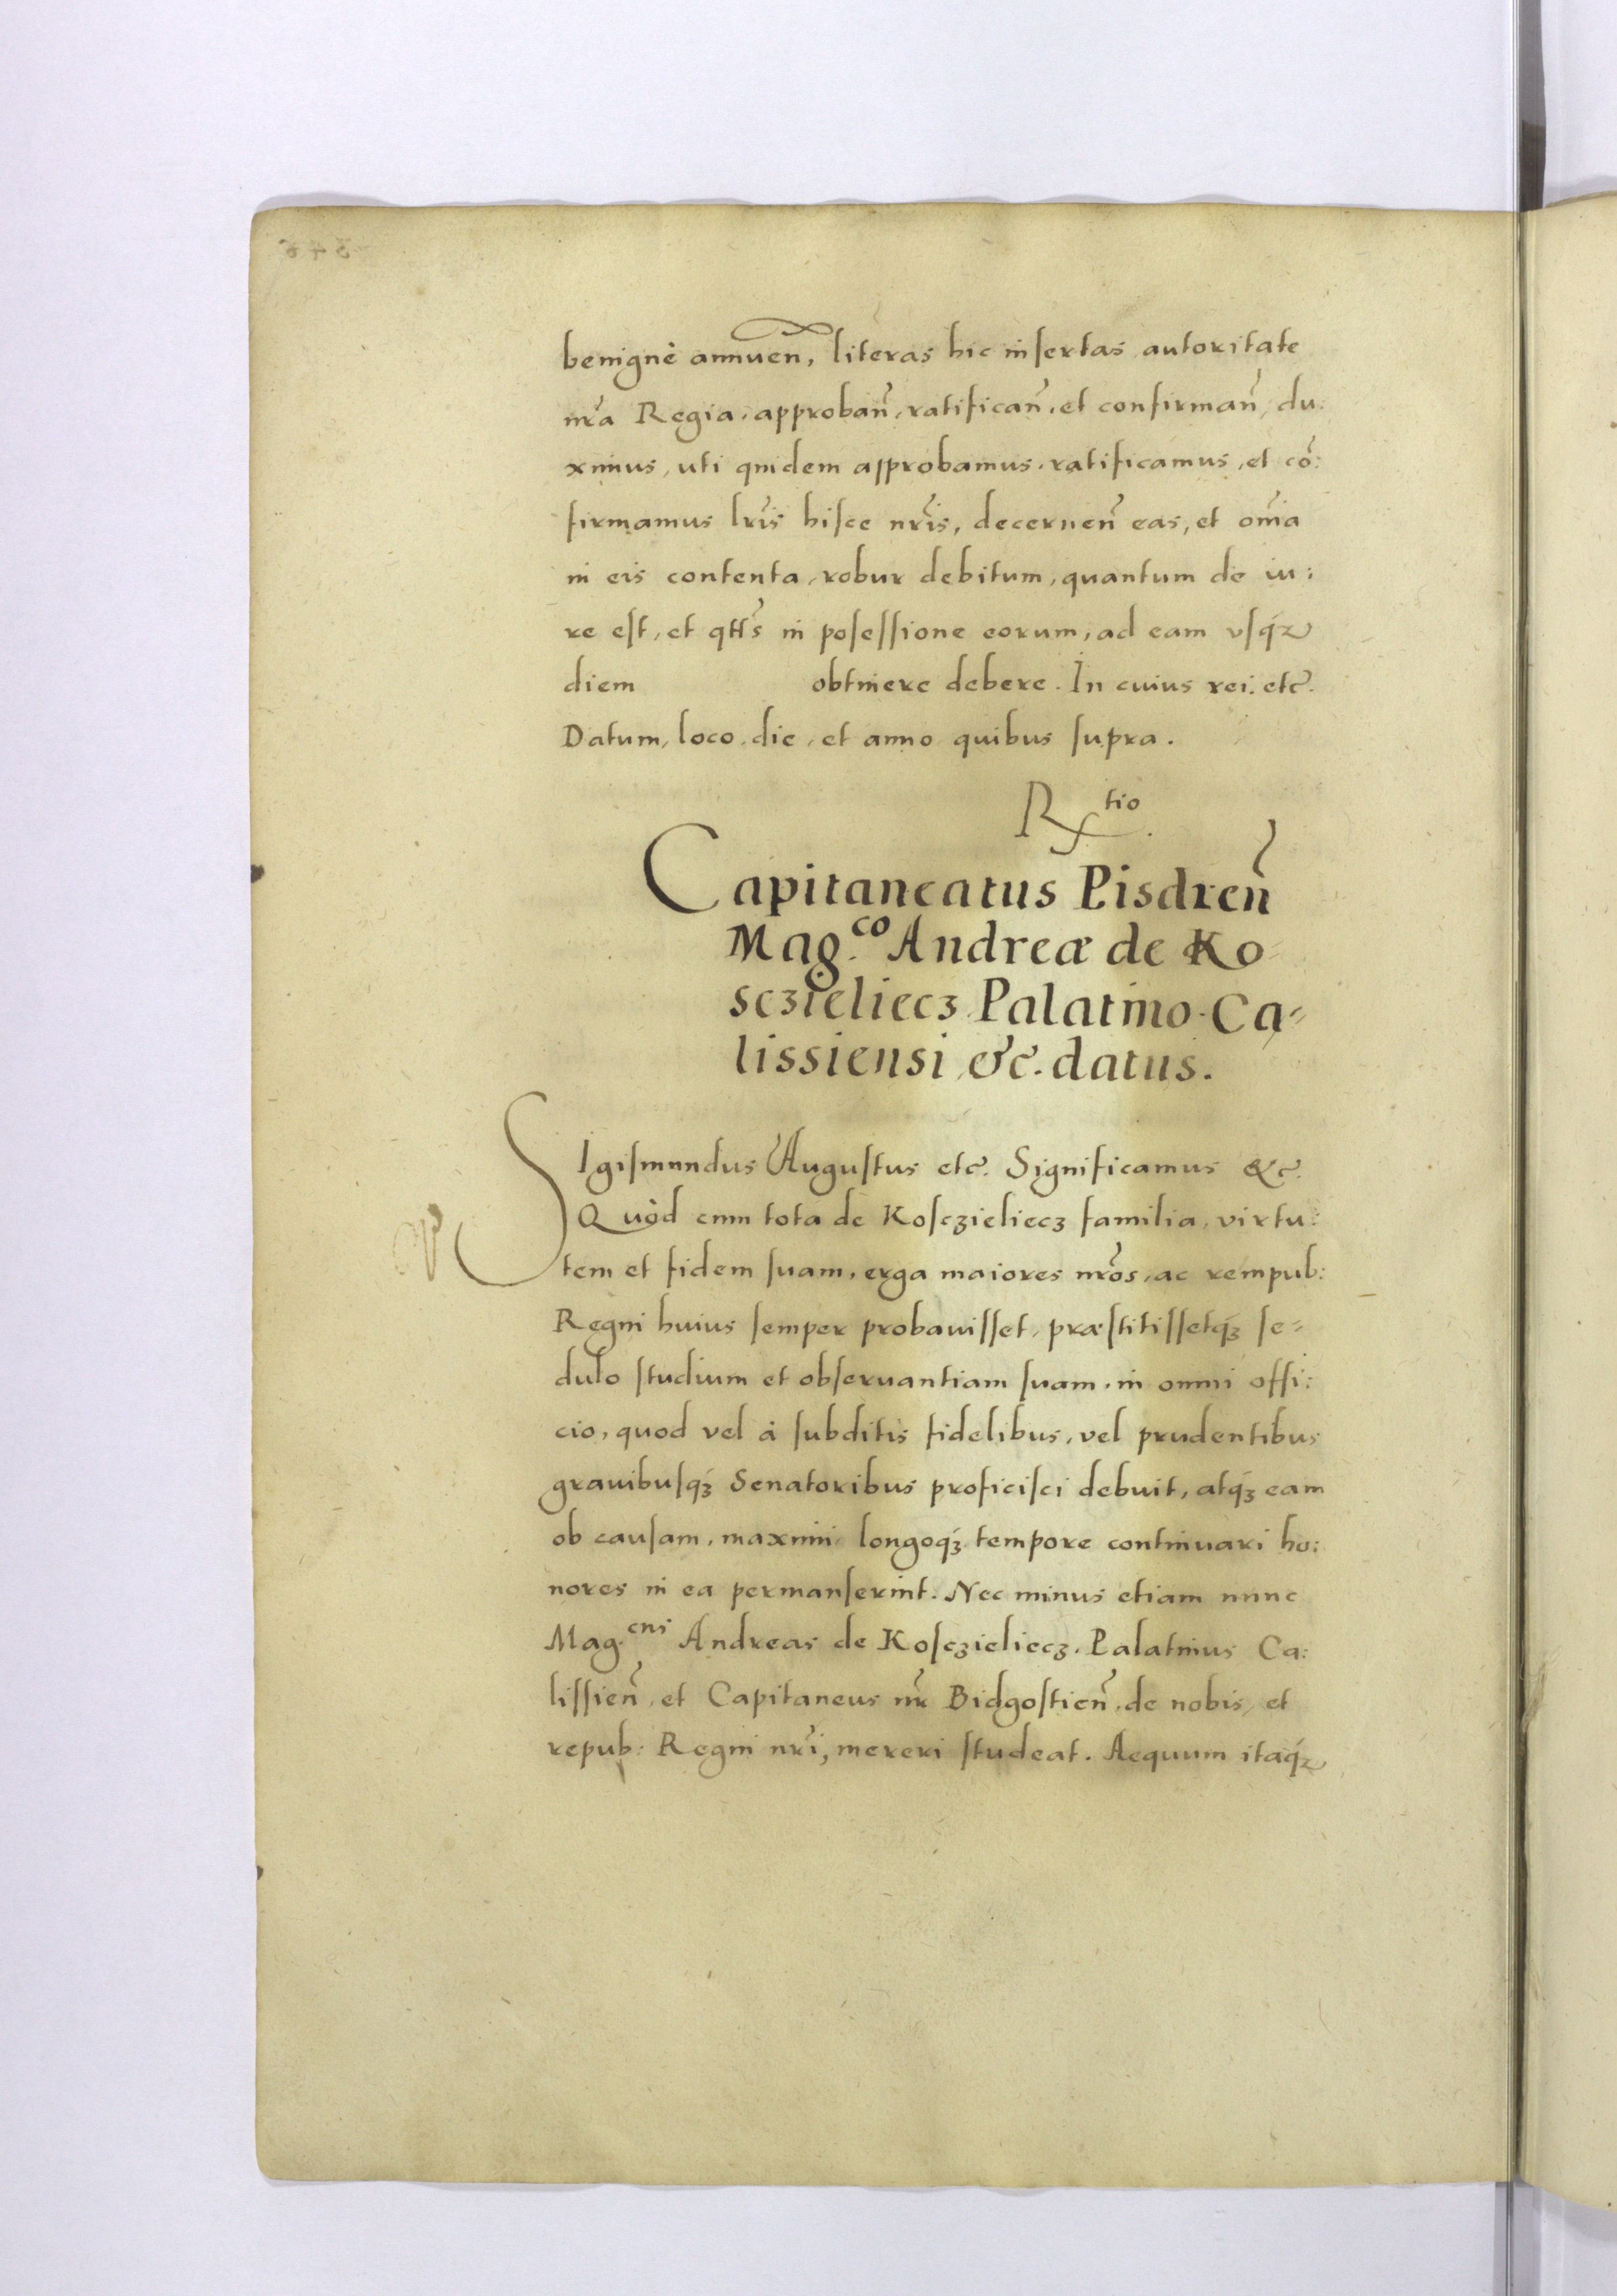 benignè annuen̄, literas hic insertas autoritate
nr̃a Regia, approban̄, ratifican̄, et confirman̄, du:
ximus, uti quidem approbamus, ratificamus, et cō:
firmamus lr̃is hisce nr̃is, decernen̄ eas, et om̃ia
in eis contenta, robur debitum, quantum de iu:
re est, et qtt̃s in posessione eorum, ad eam vsq́ꝫ
diem obtinere debere. In cuius rei. etc̃.
Datum, loco, die, et anno quibus supra.
Rx tio.
Capitaneatus Pisdren̄
Mag.co Andreæ de Ko-
sczieliecz Palatino Ca-
lissiensi, &c. datus.
SIgismundus Augustus etc̃. Significamus &c̃.
Quòd cum tota de Kosczieliecz familia, virtu:
tem et fidem suam, erga maiores nr̃os, ac rempub:
Regni huius semper probauisset, præstitissetq́ꝫ se-
dulo studium et obseruantiam suam, in omni offi:
cio, quod vel à subditis fidelibus, vel prudentibus
grauibusq́ꝫ Senatoribus proficisci debuit, atq́ꝫ eam
ob causam, maximi longoq́ꝫ tempore continuari ho:
nores in ea permanserint. Nec minus etiam nunc
Mag.cus Andreas de Kosczieliecz, Palatinus Ca:
lissien̄, et Capitaneus nr̃ Bidgostien̄, de nobis, et
repub: Regni nr̃i, mereri studeat. Aequum itaq́ꝫ